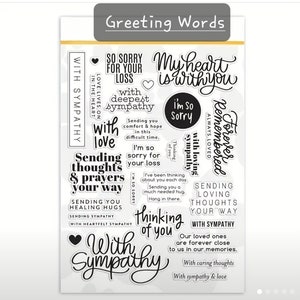 Greeting Words
WITH SYMPATHY
LOVE LIVES ON
IN THE HEART
SO SORRY
FOR YOUR
LOSS
My heart
is with you
with
deepest
sympathy
i'm so
sorry
Forever
Remembered
ALWAYS LOVED
with
love
Sending you
comfort & hope
in this
difficult time.
Thinking
of you
with loving
sympathy
I'm so
sorry for
your loss
Sending
thoughts
& prayers
your way
I've been thinking
about you each day.
Sending you a
much needed
hug.
Hang in there.
SENDING
LOVING
THOUGHTS
YOUR WAY
SENDING YOU
HEALING HUGS
SENDING SYMPATHY
WITH HEARTFELT SYMPATHY
thinking
of you
WITH SYMPATHY
Our loved ones
are forever close
to us in our memories.
With
Sympathy
With caring thoughts
With sympathy & love